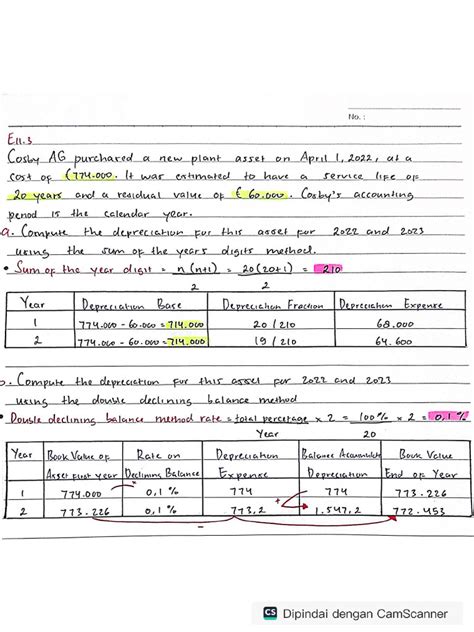 No. :
E11.3
Cosby AG purchased a new plant asset on April 1, 2022, at a
cost of €774.000. It was estimated to have a service life of
20 years and a residual value of € 60.000. Cosby's accounting
period is the calendar year.
a. Compute the depreciation for this asset for 2022 and 2023
using the sum of the years digits method.
• Sum of the year digit = n(n+1) = 20(20+1) = 210
2 2
Year Depreciation Base Depreciation Fraction Depreciation Expense
1 774.000 - 60.000 = 714.000 20 / 210 68.000
2 774.000 - 60.000 = 714.000 19 / 210 64.600
b. Compute the depreciation for this asset for 2022 and 2023
using the double declining balance method
• Double declining balance method rate = total percetage × 2 = 100% × 2 = 0,1 %
Year 20
Year Book Value of Rate on Depreciation Balance Accumulate Book Value
Asset first year Declining Balance Expense Depreciation End of Year
1 774.000 0,1 % 774 774 773.226
2 773.226 0,1 % 773,2 1.547,2 772.453
+
-
CS Dipindai dengan CamScanner